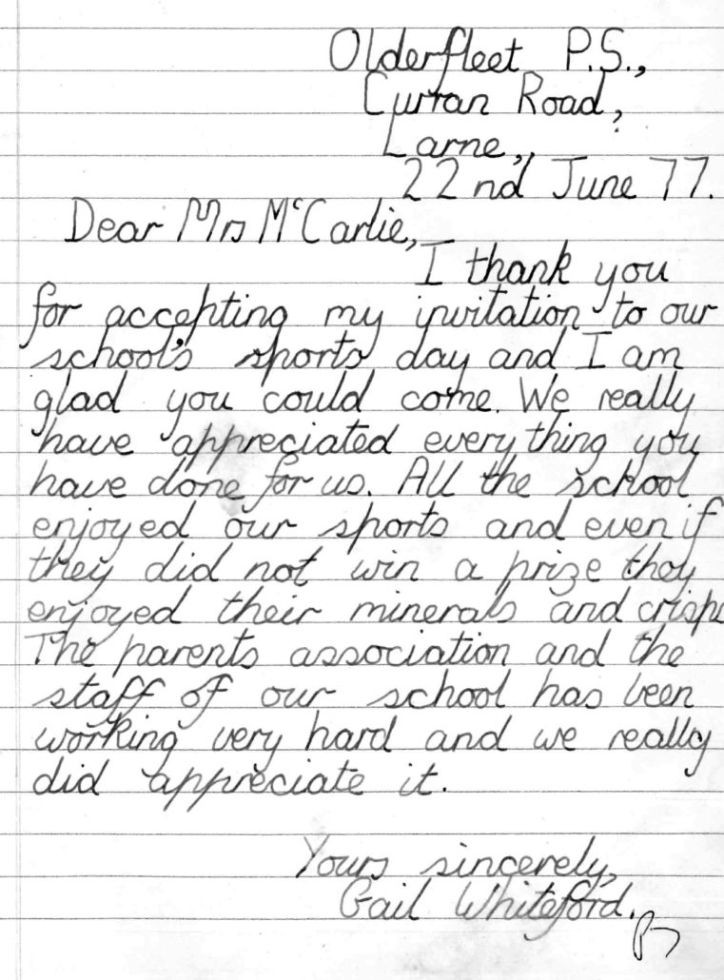 Olderfleet P.S.,
Curran Road,
Larne,,
22nd June 77.
Dear Mrs McCarlie,
I thank you
for accepting my invitation to our
school's sports day and I am
glad you could come. We really
have appreciated everything you
have done for us. All the school
enjoyed our sports and even if
they did not win a prize they
enjoyed their minerals and crisps
The parents association and the
staff of our school has been
working very hard and we really
did appreciate it.
Yours sincerely,
Gail Whiteford.